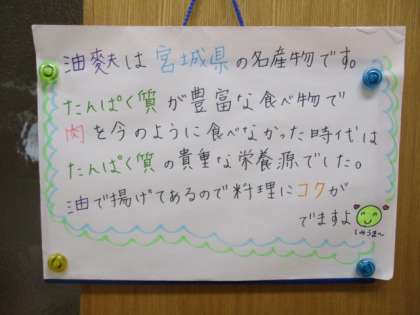 油麩は宮城県の名産物です。
たんぱく質が豊富な食べ物で
肉を今のように食べなかった時代は
たんぱく質の貴重な栄養源でした。
油で揚げてあるので料理にコクが
でますよ